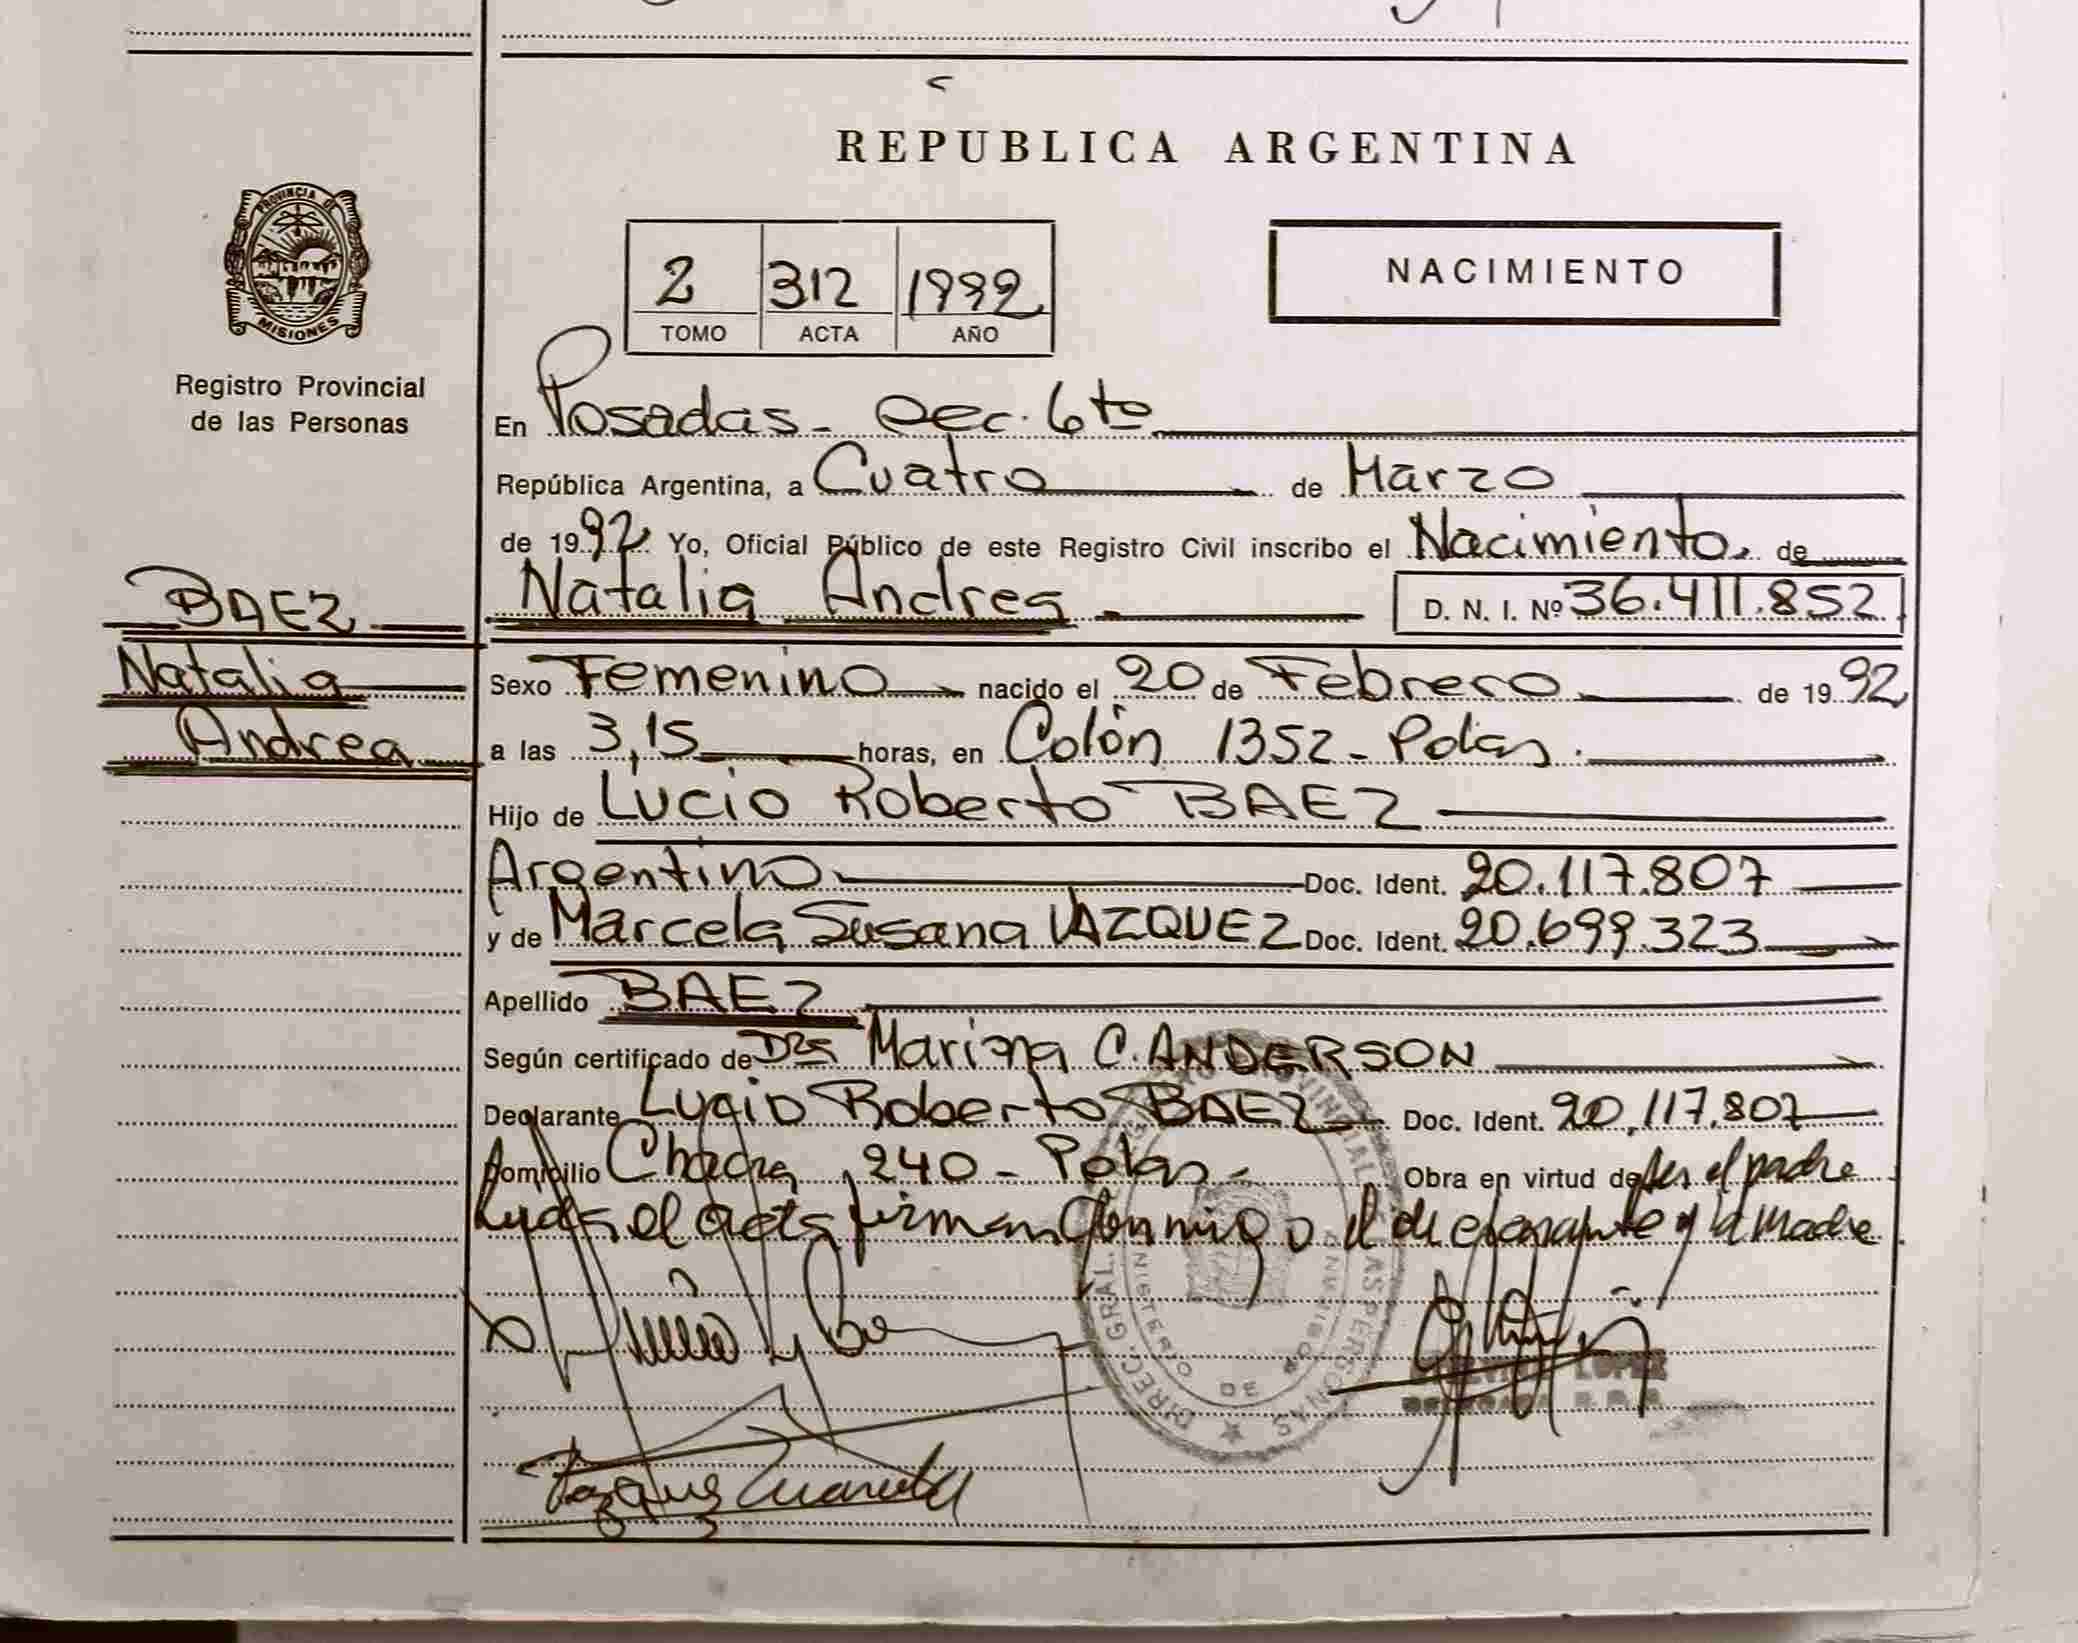 REPUBLICA ARGENTINA
PROVINCIA DE
MISIONES
Registro Provincial
de las Personas
2 312 1992
TOMO ACTA AÑO
NACIMIENTO
En Posadas - Sec. 6to
República Argentina, a Cuatro de Marzo
de 1992 Yo, Oficial Público de este Registro Civil inscribo el Nacimiento de
BAEZ
Natalia Andrea D. N. I. Nº 36.411.852
Natalia
Sexo Femenino nacido el 20 de Febrero de 1992
Andrea
a las 3,15 horas, en Colón 1352 - Pdas.
Hijo de Lucio Roberto BAEZ
Argentino Doc. Ident. 20.117.807
y de Marcela Susana VAZQUEZ Doc. Ident. 20.699.323
Apellido BAEZ
Según certificado de Dra Marina C. ANDERSON
Declarante Lucio Roberto BAEZ Doc. Ident. 20.117.807
Domicilio Chacra 240 - Pdas - Obra en virtud de ser el padre
Leyda el acta firman conmigo el declarante y la madre
DIREC. GRAL. PROVINCIAL LAS PERSONAS
MINISTERIO DE GOBIERNO
LOPEZ
Vazquez Marcela